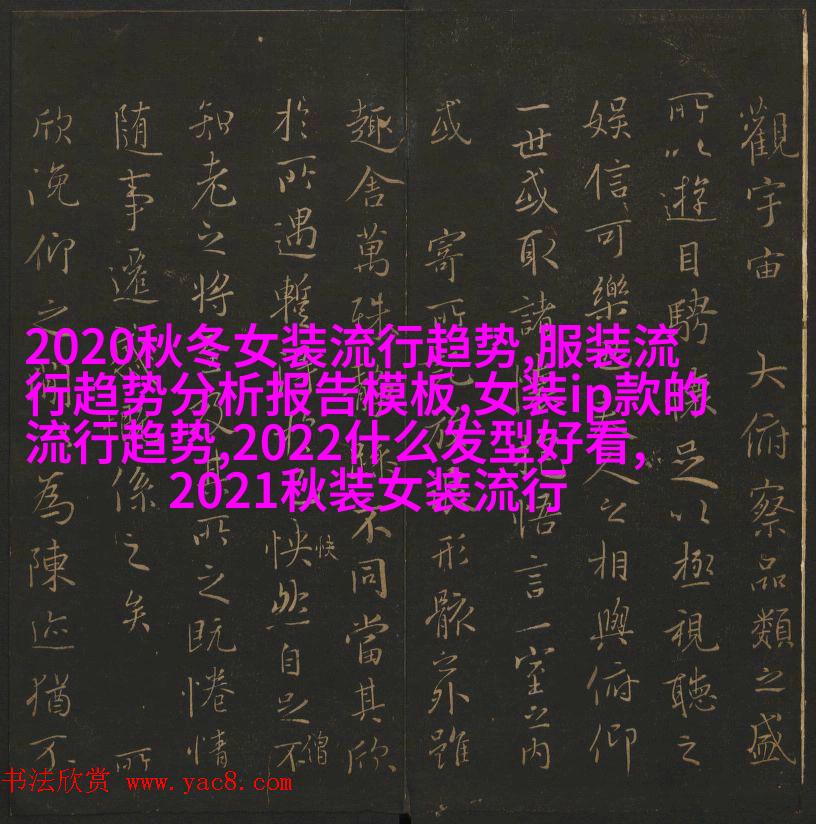 觀宇宙 大俯察品類之盛
所以遊目騁懷足以極視聽之
娛信可樂也夫人之相與俯仰
一世或取諸懷抱悟言一室之內
或 寄所託放浪形骸之外雖
趣舍萬殊靜躁不同當其欣
於所遇暫得於己怏然自足不
快
僧
知老之將至及其所之既惓情
随事遷感慨係之矣 所
欣俛仰之間以為陳迹猶不
2020秋冬女装流行趋势,服装流
行趋势分析报告模板,女装ip款的
流行趋势,2022什么发型好看,
2021秋装女装流行
书法欣赏 www.yac8.com